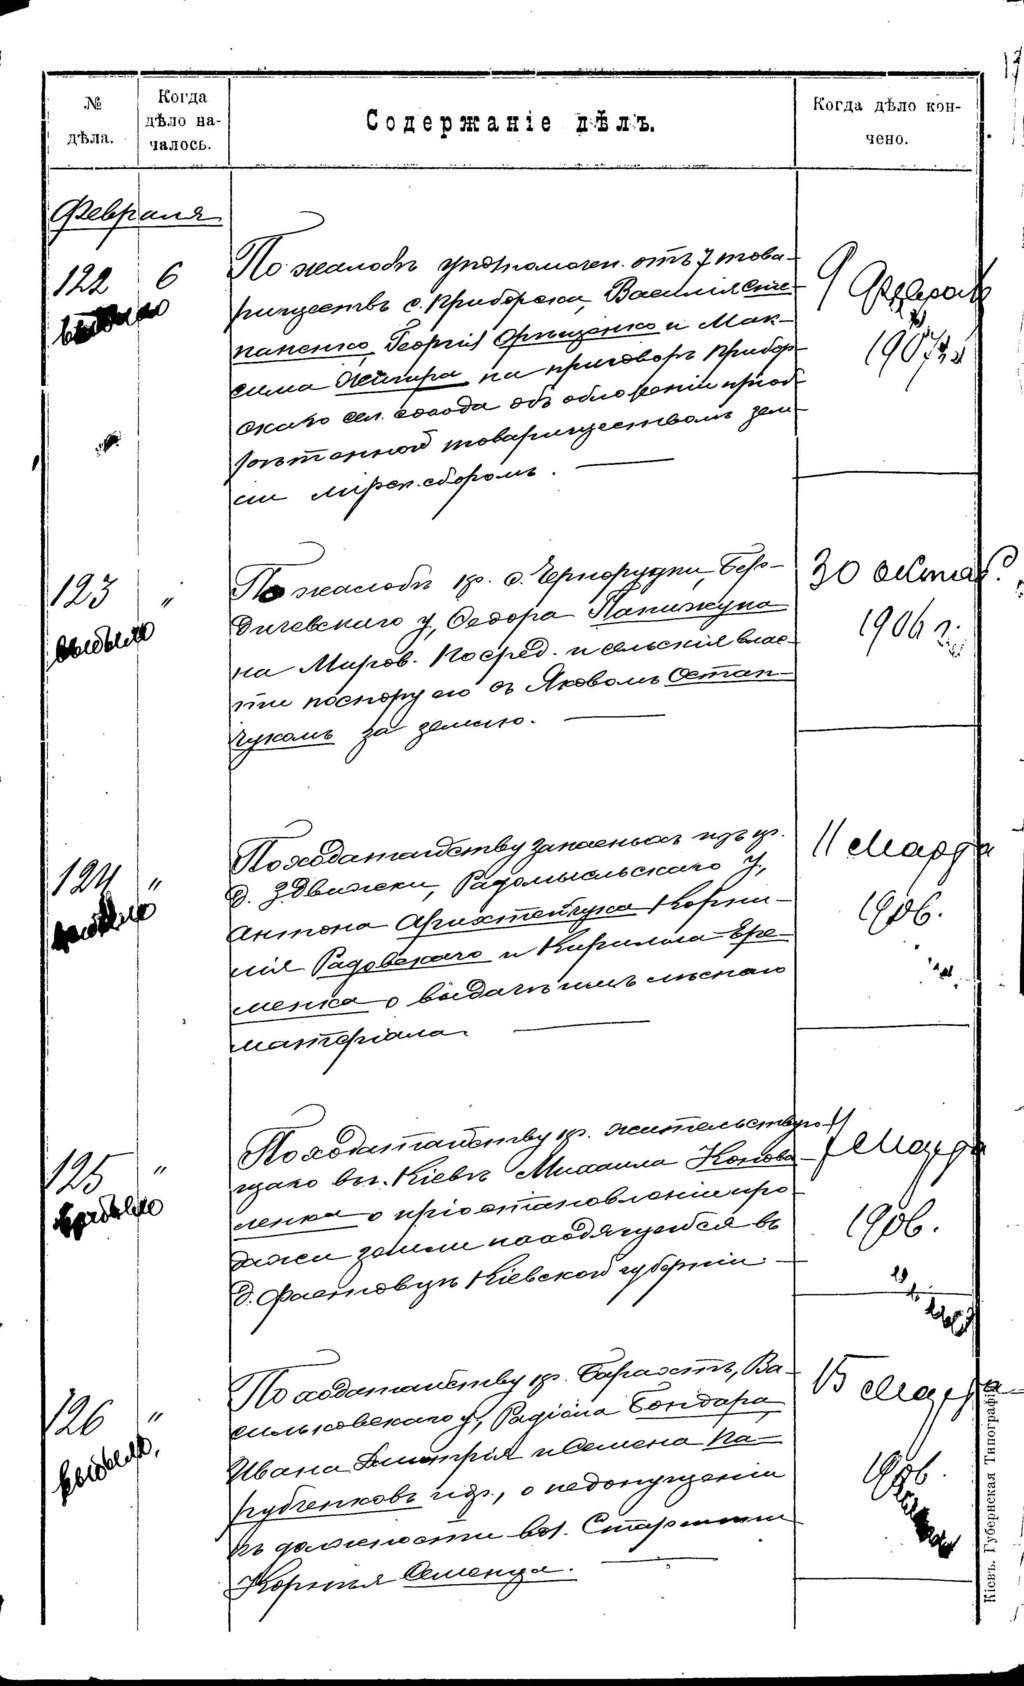 № дѣла.
Когда дѣло началось.
Содержаніе дѣлъ.
Когда дѣло кончено.
Февраля
122 6
выбыло
По жалобѣ уполномочен. отъ 7 това-
риществъ с. Приборска, Василія Сте-
паненко, Георгія Онищенко и Мак-
сима на приговоръ Прибор-
скаго сел. схода объ обложеніи пріоб-
рѣтенной товариществомъ зем-
ли мірск. сборомъ.
9 Февраля
1907 г.
123 "
выбыло
По жалобѣ кр. с. Чернорудки, Бер-
дичевскаго у, Федора Панижука
на Миров. Посред. и сельскія влас-
ти по спору его съ Яковомъ Остап-
чукомъ за землю.
30 октяб.
1906 г.
124 "
выбыло
По ходатайству запасныхъ изъ кр.
д. Здвижки, Радомысльскаго у,
Антона Корни-
лія Радовскаго и Кирилла Ере-
менка о выдачѣ имъ лѣснаго
матеріала.
11 Марта
1906.
125 "
выбыло
По ходатайству кр. жительствую-
щаго въ г. Кіевѣ Михаила Конова-
ленка о пріостановленіи про-
дажи земли находящейся въ
д. Кіевской губерніи.
11 Марта
1906.
126 "
выбыло.
По ходатайству кр. Барахтъ, Ва-
сильковскаго у, Радіона Бондара,
Ивана Дмитрія и Семена Па-
рубченковъ и др., о недопущеніи
къ должности вол. Старшины
Корнія Семенца.
15 Марта
1906.
Кіевъ. Губернская Типографія